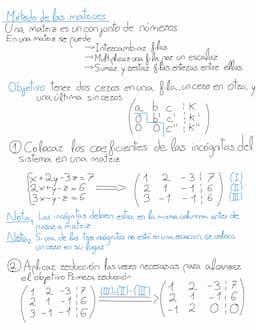 Método de las matrices
Una matriz es un conjunto de números
En una matriz se puede
→Intercambiar filas
→Multiplicar una fila por un escalar
→Sumar y restar filas enteras entre ellas
Objetivo tener dos ceros en una fila, un cero en otra, y
una última sin ceros
(a b c ¦ K
0 b' c' ¦ K'
0 0 c'' ¦ K'')
① Colocar los coeficientes de las incógnitas del
sistema en una matriz
{x+2y-3z=7 ⟹ (1 2 -3 ¦ 7) (I)
2x+y-z=6 (2 1 -1 ¦ 6) (II)
3x-y-z=6 (3 -1 -1 ¦ 6) (III)
Nota, Las incógnitas deben estar en la misma columna antes de
pasar a matriz
Nota, Si una de las tres incógnitas no está en una ecuación, se coloca
un cero en su lugar
② Aplicar reducción las veces necesarias para alcanzar
el objetivo Primera reducción
(1 2 -3 ¦ 7) (III)=(III)-(II) (1 2 -3 ¦ 7)
(2 1 -1 ¦ 6) ⟹ (2 1 -1 ¦ 6)
(3 -1 -1 ¦ 6) (1 -2 0 ¦ 0)